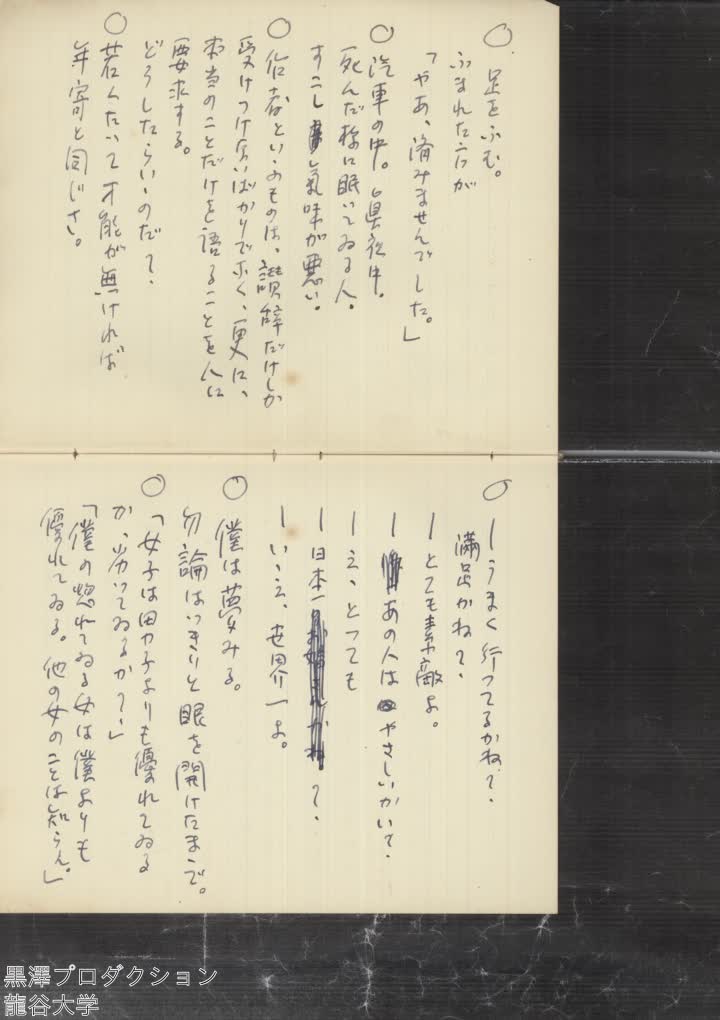 ○ 足をふむ。
ふまれた方が
「やあ、済みませんでした。」
○ 汽車の中。眞夜中。
死んだ様に眠いてゐる人。
すこし氣味が悪い。
○ 作者といふものは、讃辞だけしか
受けつけないばかりでなく、更に、
本当のことだけを語ることを人に
要求する。
どうしたらいゝのだ?、
○ 若くたいて才能が無ければ
年寄と同じさ。
○ ーうまく行つてるかね?、
満足かね?、
ーとても素敵よ。
ーあの人はやさしいかい?、
ーえゝとつても
ー日本一?、
ーいゝえ、世界一よ。
○ 僕は夢みる。
勿論はつきりと眼を開けたまゝで。
○ 「女子は男子よりも優れてゐる
か、劣いてゐるか?」
「僕の惚れてゐる女は僕よりも
優れてゐる。他の女のことは知らん。」
黒澤プロダクション
龍谷大学